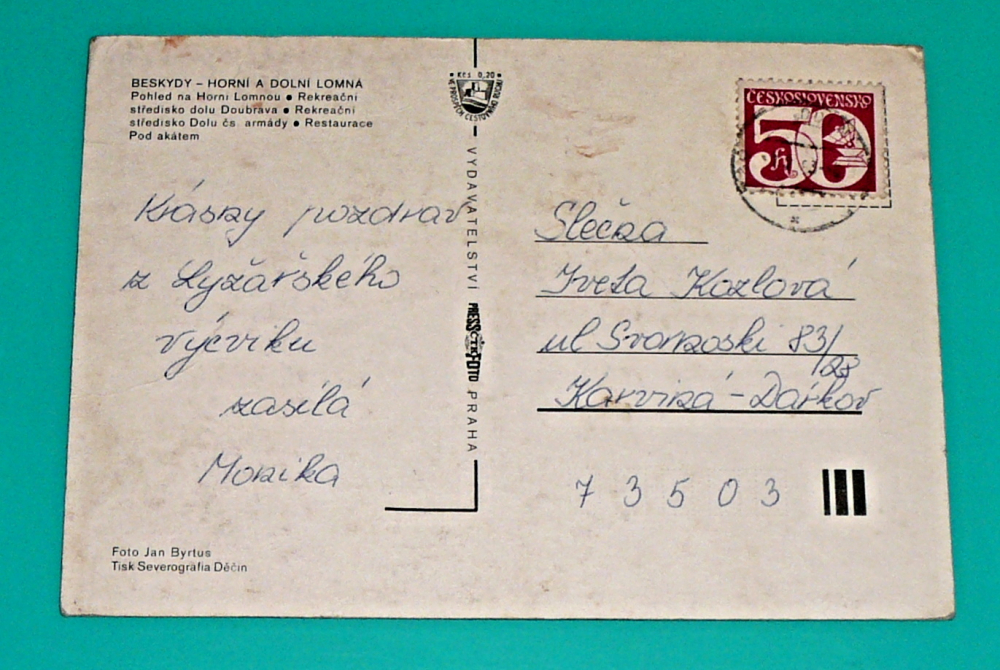 BESKYDY – HORNÍ A DOLNÍ LOMNÁ
Pohled na Horní Lomnou ● Rekreační
středisko dolu Doubrava ● Rekreační
středisko Dolu čs. armády ● Restaurace
Pod akátem
Krásný pozdrav
z Lyžařského
výcviku
zasílá
Monika
Foto Jan Byrtus
Tisk Severografia Děčín
Kčs 0,20
VE PROSPĚCH CESTOVNÍHO RUCHU
VYDAVATELSTVÍ PRESSFOTO PRAHA
ČTK
ČESKOSLOVENSKO
50
h
Slečna
Iveta Kozlová
ul 83/28
Karviná – Dárkov
73503